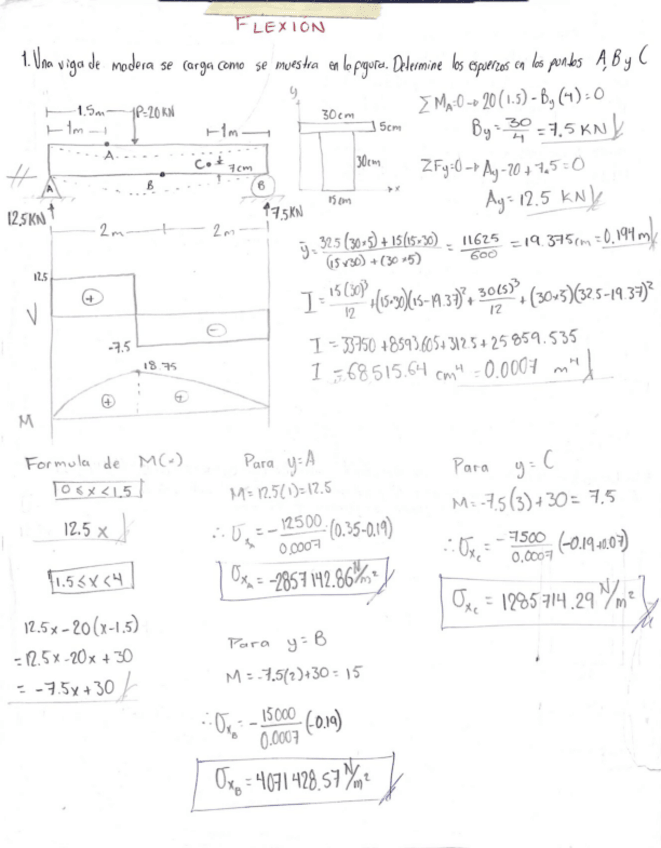 FLEXIÓN
1. Una viga de madera se carga como se muestra en la figura. Determine los esfuerzos en los puntos A, B y C
1.5m P=20KN
1m 1m
A
C 7cm
B
A B
12.5KN 7.5KN
2m 2m
y
30cm
5cm
30cm
15cm
x
ΣMA=0→20(1.5)-By(4)=0
By=30/4=7.5KN
ΣFy=0→Ay-20+7.5=0
Ay=12.5 KN
ȳ=32.5(30×5)+15(15×30)/(15×30)+(30×5)=11625/600=19.375cm=0.194m
I=15(30)³/12+(15×30)(15-19.37)²+30(5)³/12+(30×5)(32.5-19.37)²
I=33750+8593.605+312.5+25859.535
I=68515.64 cm⁴=0.0007 m⁴
12.5
V
+
-
-7.5
18.75
+ +
M
Formula de M(x)
0≤x<1.5
12.5x
1.5≤x<4
12.5x-20(x-1.5)
=12.5x-20x+30
=-7.5x+30
Para y=A
M=12.5(1)=12.5
∴σxA=-12500/0.0007(0.35-0.19)
σxA=-2857142.86N/m²
Para y=B
M=-7.5(2)+30=15
∴σxB=-15000/0.0007(-0.19)
σxB=4071428.57N/m²
Para y=C
M=-7.5(3)+30=7.5
∴σxC=-7500/0.0007(-0.19+0.07)
σxC=1285714.29N/m²